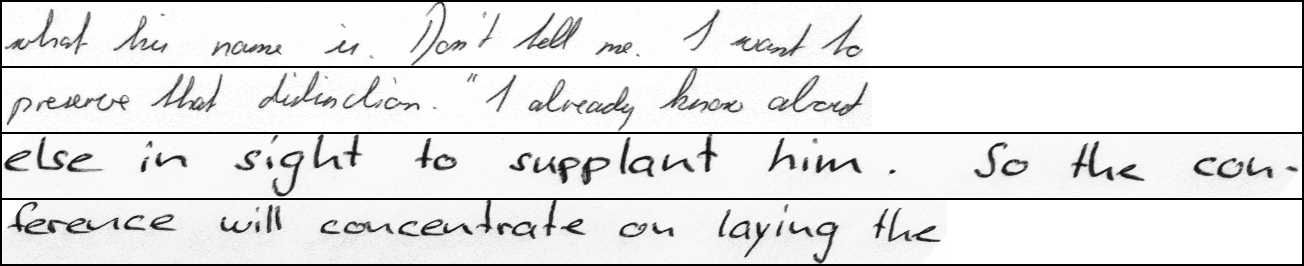 what his name is. Don't tell me. I want to
preserve that distinction. "I already know about
else in sight to supplant him. So the con-
ference will concentrate on laying the